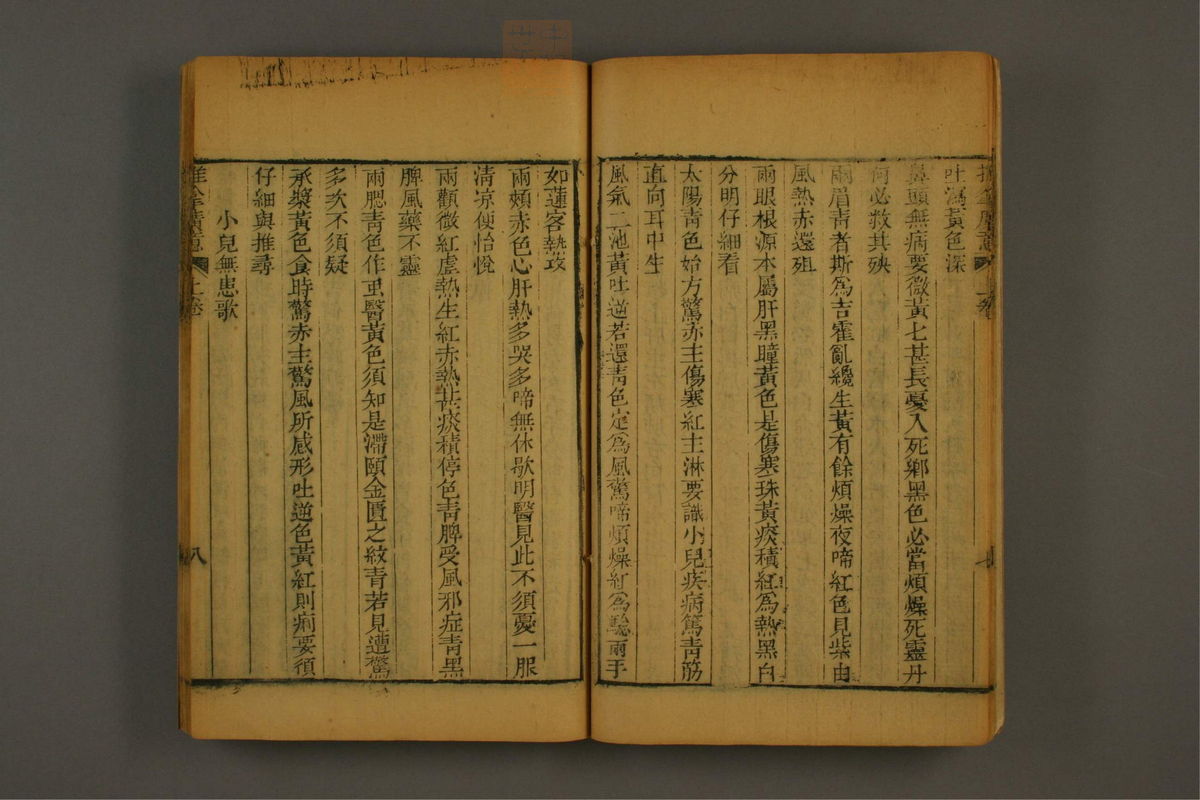 吐瀉黃色深
鼻頭無病要微黃七甚長憂入死鄉黑色必當煩燥死靈丹
何必救其殃
兩眉靑者斯爲吉霍亂纔生黃有餘煩燥夜啼紅色見柴由
風熱赤還殂
兩眼根源本屬肝黑瞳黃色是傷寒珠黃痰積紅爲熱黑白
分明仔細看
太陽靑色始方驚赤主傷寒紅主淋要識小兒疾病篤靑筋
直向耳中生
風氣二池黃吐逆若還靑色定爲風驚啼煩燥紅爲驗兩手
如蓮客熱攻
兩頰赤色心肝熱多哭多啼無休歇明醫見此不須憂一服
淸凉便怡悅
兩觀微紅虛熱生紅赤熱甚痰積停色靑脾受風邪症靑黑
脾風藥不靈
兩腮靑色作虫醫黃色須知是滯頤金匱之紋靑若見遭驚
多次不須疑
承漿黃色食時驚赤主驚風所感形吐逆色黃紅則痢要須
仔細與推尋
小兒無患歌
上卷
八